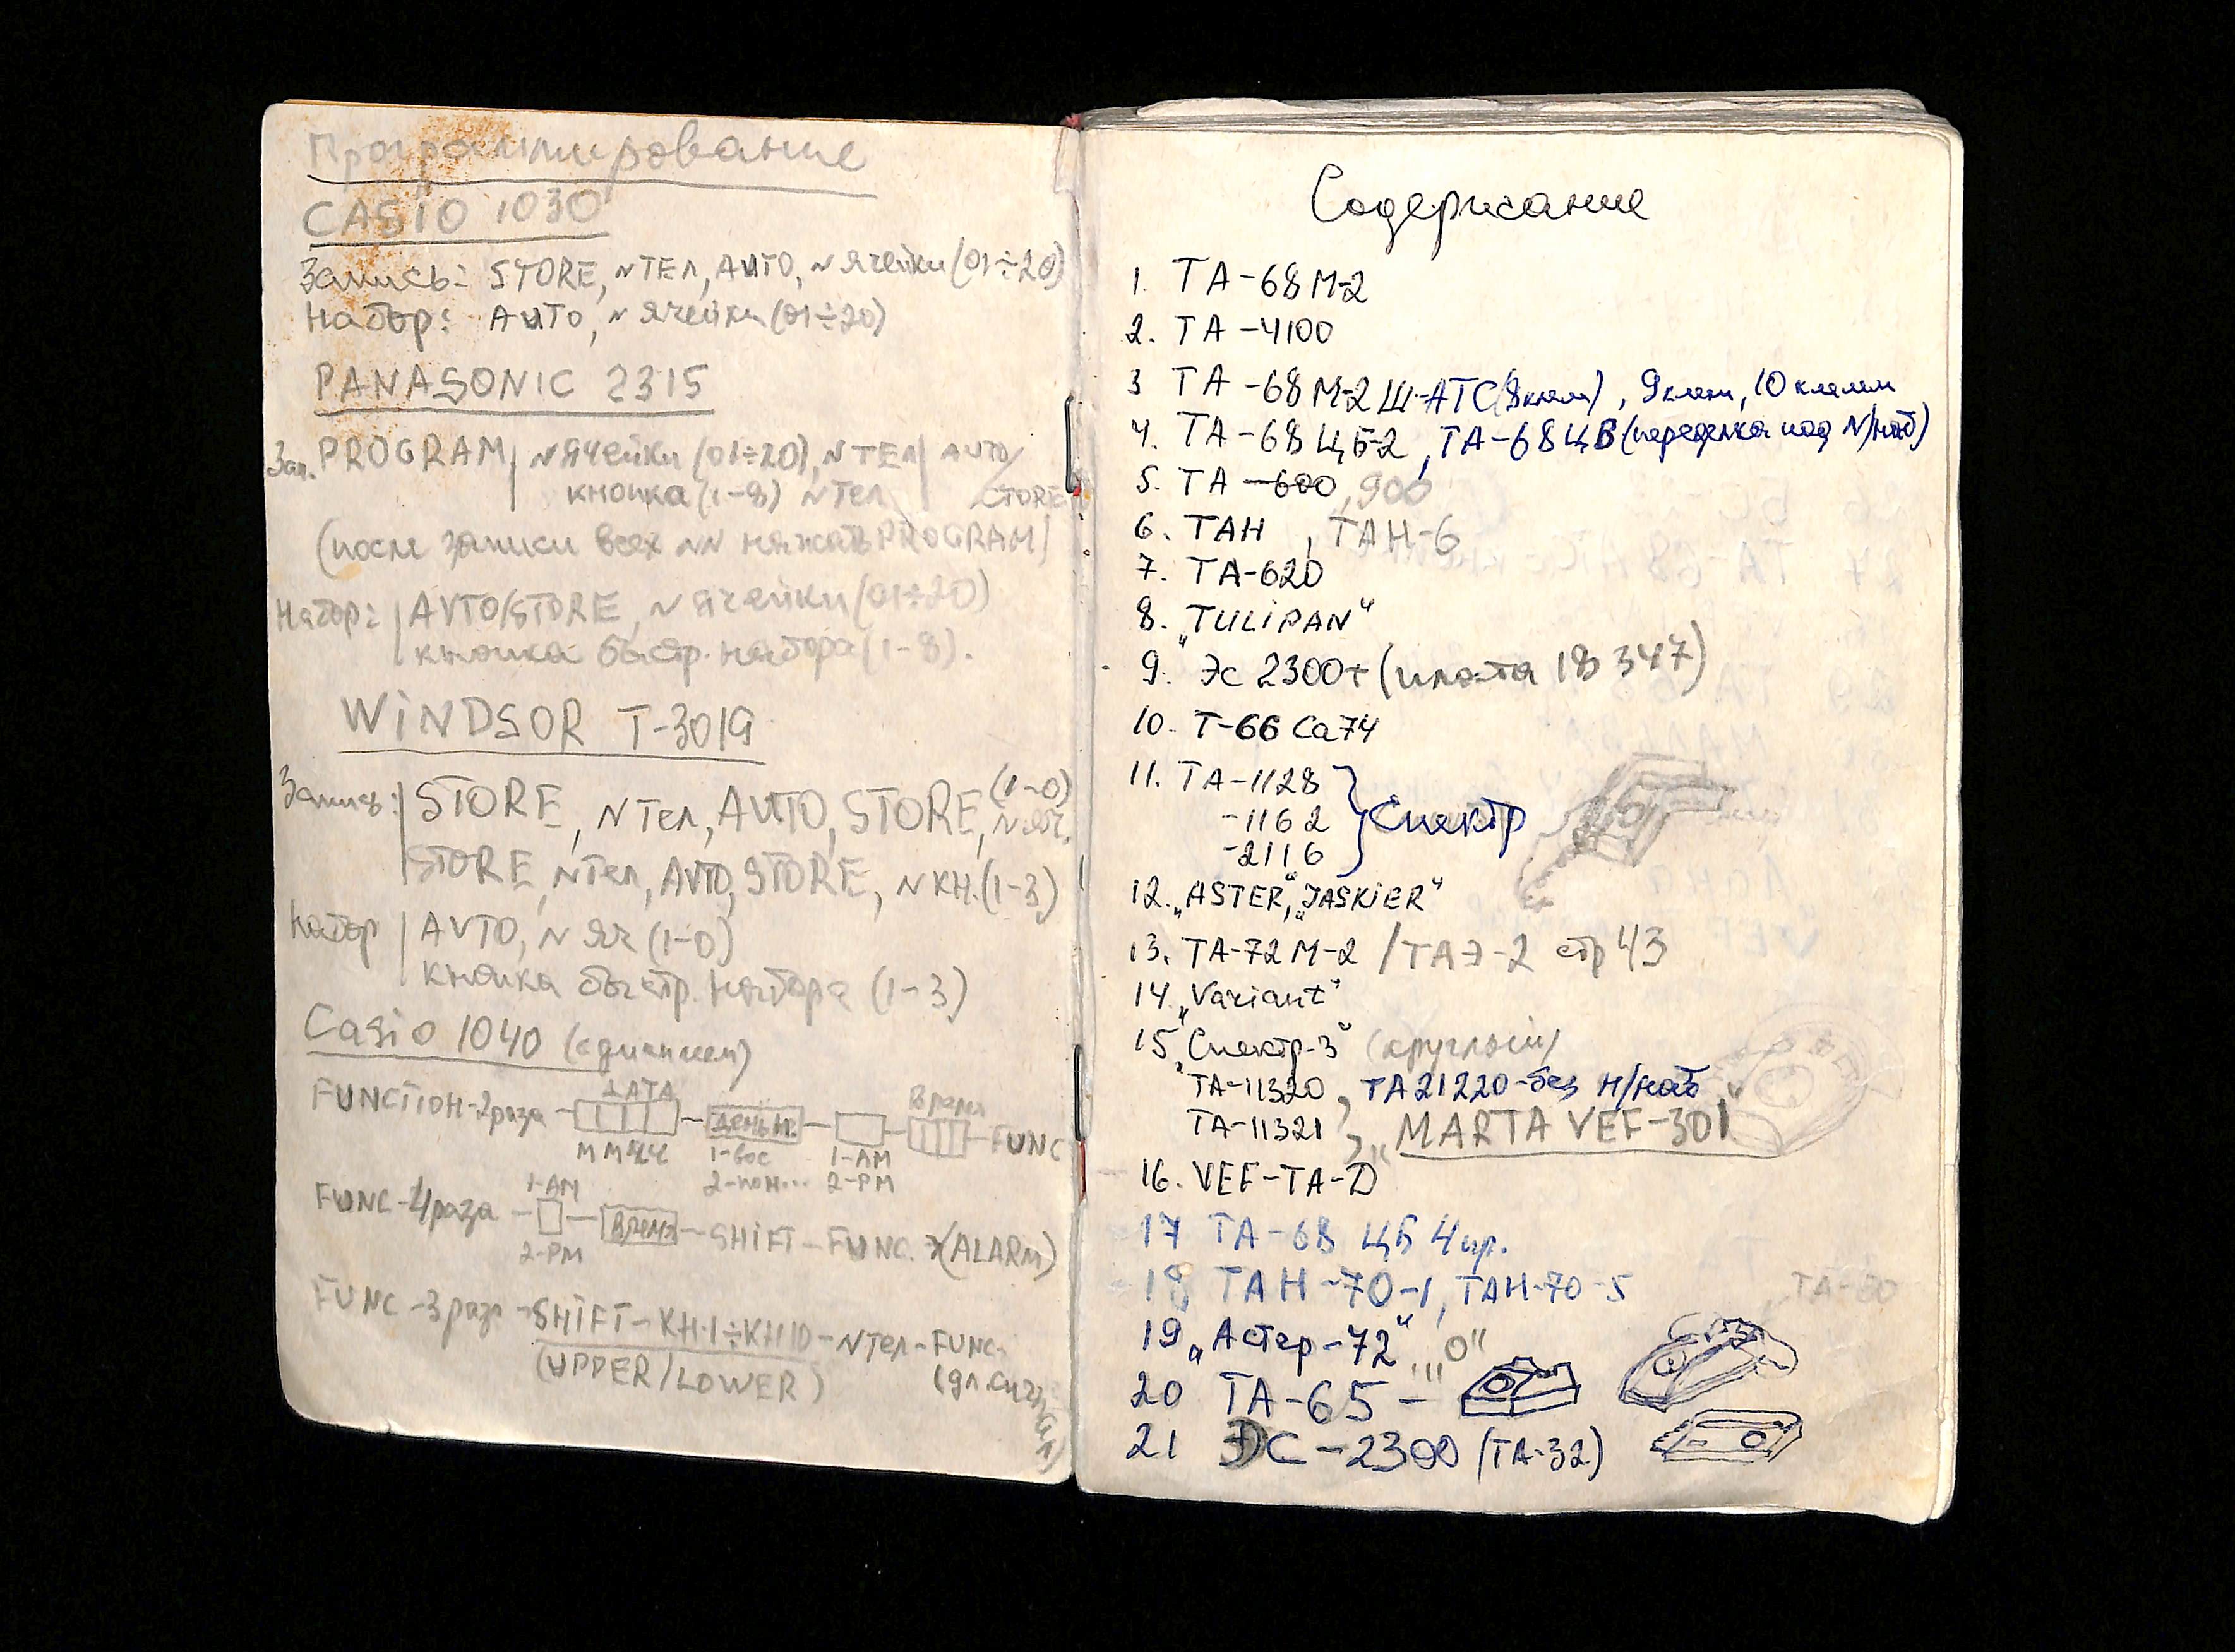 Программирование
CASIO 1030
Запись: STORE, NТЕЛ, AUTO, N ячейки (01÷20)
Набор: AUTO, N ячейки (01÷20)
PANASONIC 2315
Зап. PROGRAM | N ячейки (01÷20), N ТЕЛ | AUTO/
кнопка (1-8) N Тел STORE
(после записи всех NN нажать PROGRAM)
Набор: | AUTO/STORE, N ячейки (01÷20)
кнопка быстр. набора (1-8).
WINDSOR T-3019
Запись: | STORE, N Тел, AUTO, STORE, (1-0) N яч.
STORE, N Тел, AUTO, STORE, N КН. (1-3)
Набор | AUTO, N яч (1-0)
кнопка быстр. набора (1-3)
Casio 1040 (с дисплеем)
ДАТА Время
FUNCTION-2раза - - День н. - - - FUNC
ММЧЧ 1-вос 1-AM
2-пон... 2-PM
1-AM
FUNC-4раза - - Время - SHIFT - FUNC. (ALARM)
2-PM
FUNC-3раза - SHIFT - КН.1÷КН10 - N Тел - FUNC
(UPPER/LOWER) (дл. сигнал)
Содержание
1. ТА-68М-2
2. ТА-4100
3 ТА-68М-2 Ш-АТС (8клем), 9клем, 10 клемм
4. ТА-68 ЦБ-2, ТА-68ЦБ (переделка под N/наб)
5. ТА-600, 900
6. ТАН, ТАН-6
7. ТА-620
8. „TULIPAN"
9. Эс 2300+ (плата 18347)
10. Т-66 Са74
11. ТА-1128
-1162 } Спектр
-2116
12. „ASTER", „JASKIER"
13. ТА-72М-2 /ТАЭ-2 стр 43
14 „Variant"
15 „Спектр-3" (круглый)
ТА-11320, ТА21220-без н/наб
ТА-11321, „MARTA VEF-301"
16. VEF-TA-D
17 ТА-68 ЦБ 4пр.
18 ТАН-70-1, ТАН-70-5
ТА-60
19 „Астер-72" „О"
20 ТА-65 -
21 ЭС-2300 (ТА-32)